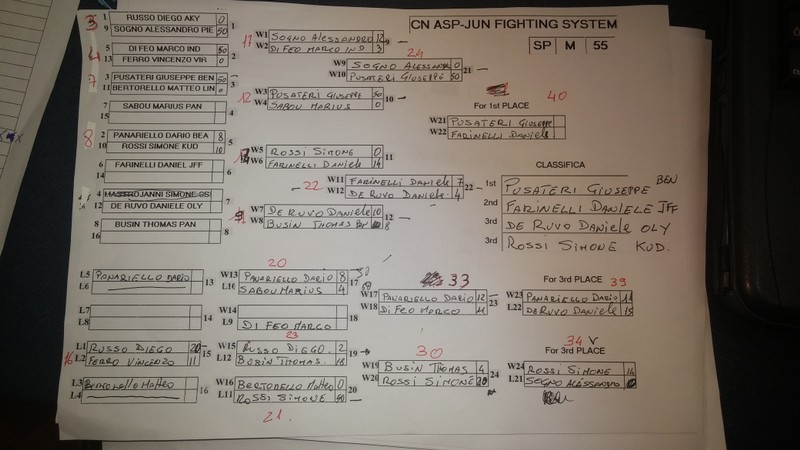 CN ASP-JUN FIGHTING SYSTEM
SP M 55
3 1 RUSSO DIEGO AKY 0 1
9 SOGNO ALESSANDRO PIE 50
4 5 DI FEO MARCO IND 50 2
13 FERRO VINCENZO VIR 0
7 3 PUSATERI GIUSEPPE BEN 50 3
11 BERTORELLO MATTEO LIN 0
7 SABOU MARIUS PAN 4
15
8 2 PANARIELLO DARIO BEA 8 5
10 ROSSI SIMONE KUD 10
6 FARINELLI DANIEL JFF 6
14
4 7
12 DE RUVO DANIELE OLY
8 BUSIN THOMAS PAN 8
16
17 W1 SOGNO ALESSANDRO 12 9
W2 DI FEO MARCO IND 3
12 W3 PUSATERI GIUSEPPE 50 10
W4 SABOU MARIUS 0
W5 ROSSI SIMONE 0 11
W6 FARINELLI DANIELE 14
W7 DE RUVO DANIELE 10 12
W8 BUSIN THOMAS 8
24
W9 SOGNO ALESSANDRO 0 21
W10 PUSATERI GIUSEPPE 50
22 W11 FARINELLI DANIELE 7 22
W12 DE RUVO DANIELE 4
For 1st PLACE 40
W21 PUSATERI GIUSEPPE
W22 FARINELLI DANIELE
CLASSIFICA
1st PUSATERI GIUSEPPE BEN
2nd FARINELLI DANIELE JFF
3rd DE RUVO DANIELE OLY
3rd ROSSI SIMONE KUD.
L5 PANARIELLO DARIO 13
L6
L7 14
L8
L1 RUSSO DIEGO 15
16 L2 FERRO VINCENZO 11
L3 16
L4
20
W13 PANARIELLO DARIO 8 17
L10 SABOU MARIUS 4
W14 18
L9 DI FEO MARCO
23
W15 RUSSO DIEGO. 2 19
L12 BUSIN THOMAS. 18
W16 BERTORELLO MATTEO 0 20
L11 ROSSI SIMONE 50
21.
33
W17 PANARIELLO DARIO 12 23
W18 DI FEO MARCO 11
30
W19 BUSIN THOMAS 4 24
W20 ROSSI SIMONE 20
For 3rd PLACE 39
W23 PANARIELLO DARIO 11
L22 DE RUVO DANIELE 15
34 V
For 3rd PLACE
W24 ROSSI SIMONE 14
L21 SOGNO ALESSANDRO